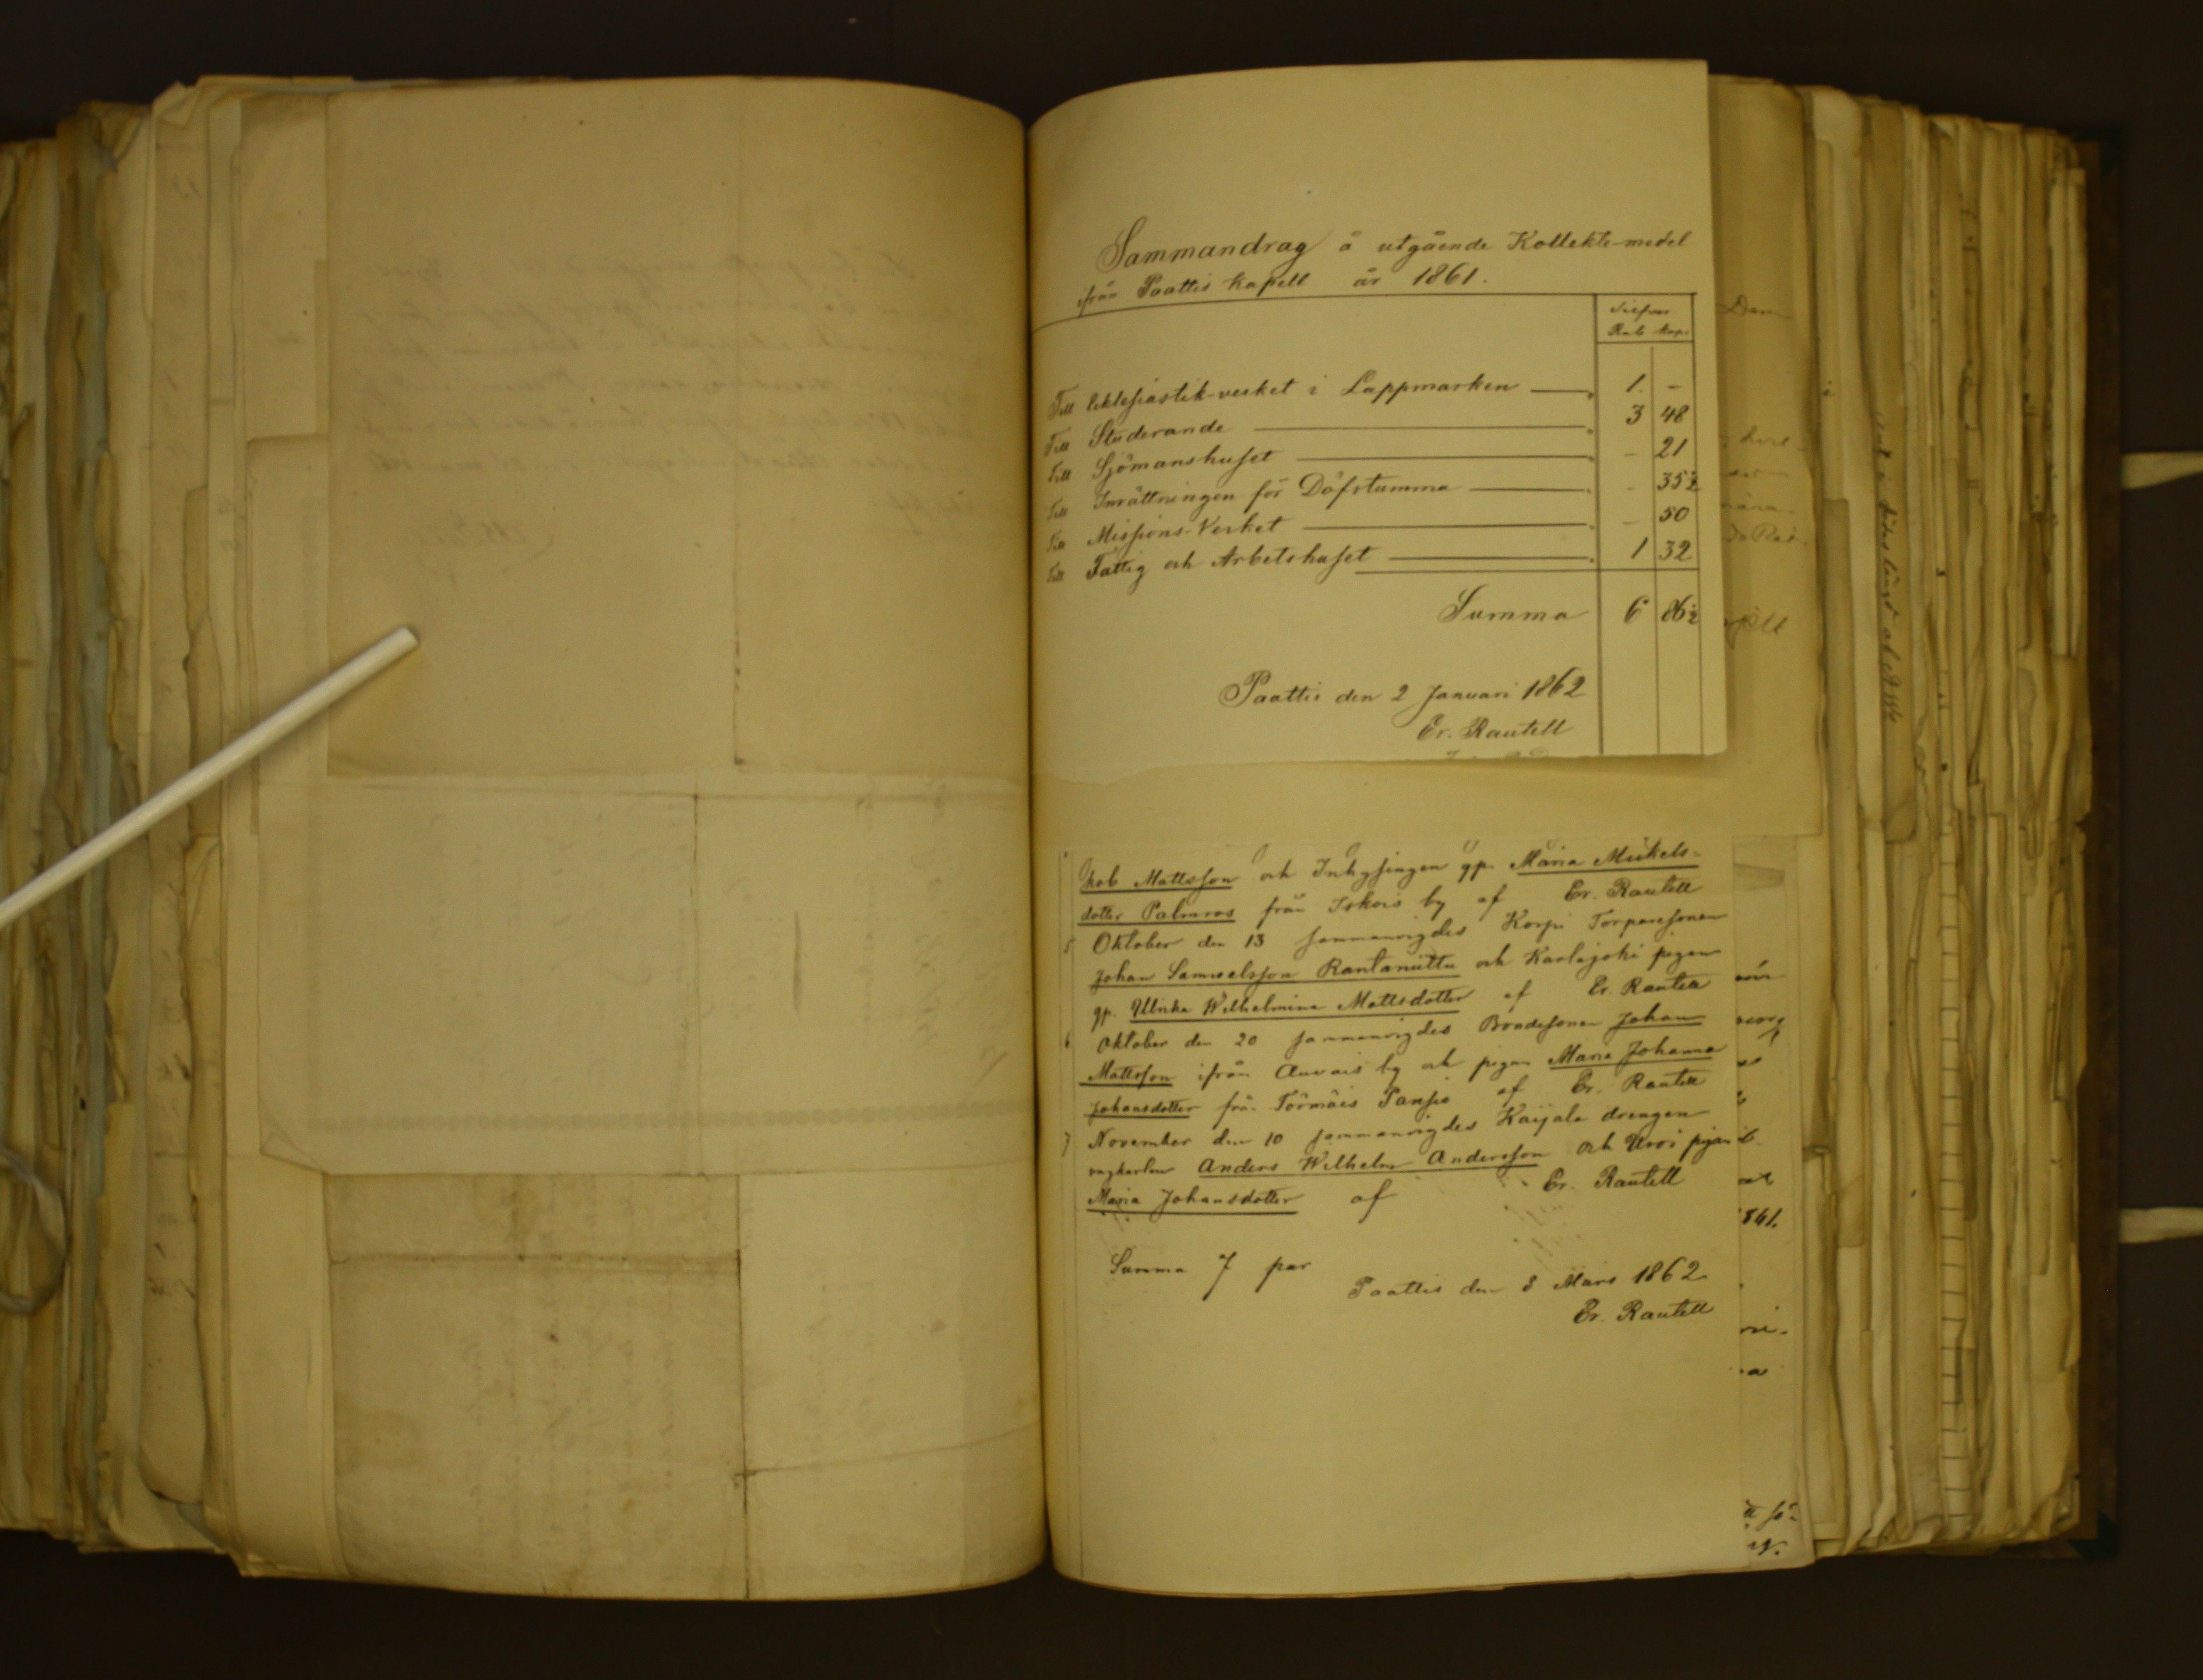 Sammandrag å utgående Kollekte-medel
ifrån Paattis kapell år 1861.
Silfver
Rub. Kop.
Till Ecklesiastik-verket i Lappmarken 1. -
Till Studerande 3 48
Till Sjömanshuset - 21
Till Inrättningen för Döfstumma - 35½
Till Missions-Verket - 50
Till Fattig och Arbetshuset 1 32
Summa 6 86½
Paattis den 2 Januari 1862
Er. Rautell
kob Mattsson och Inhysingen gp. Maria Mickels-
dotter Palmros från Iskois by af Er. Rautell
5 Oktober den 13 sammanvigdes Korpi Torparesonen
Johan Samuelsson Rantaniittu och Karlajoki pigan
gp. Ulrika Wilhelmina Mattsdotter af Er. Rautell
6 Oktober den 20 sammanvigdes Bondesonen Johan
Mattsson ifrån Auvais by och pigan Maria Johanna
Johansdotter från Törmäis Pansio af Er. Rautell
7 November den 10 sammanvigdes Kaijala drengen
ungkarlen Anders Wilhelm Andersson och Uroi pigan
Maria Johansdotter af Er. Rautell
Summa 7 par
Paattis den 8 Mars 1862
Er. Rautell